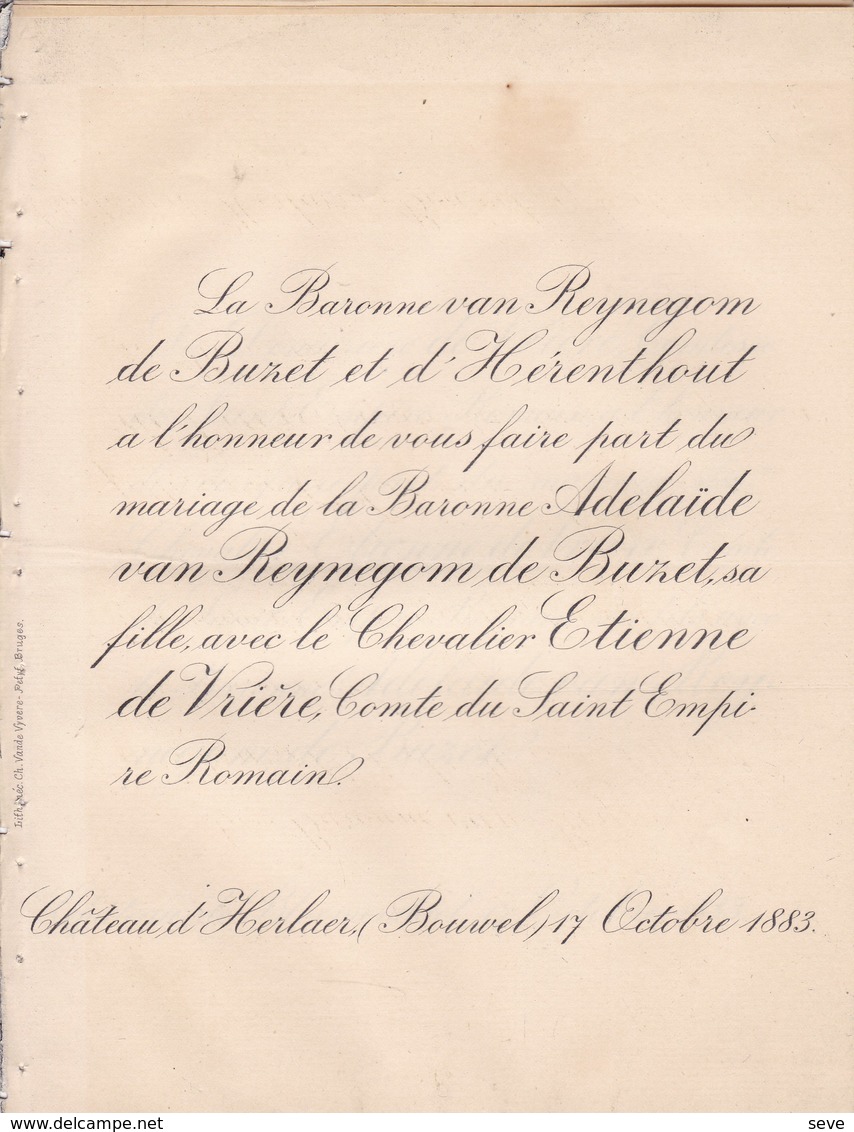 La Baronne van Reynegom
de Buzet et d'Hérenthout
a l'honneur de vous faire part du
mariage de la Baronne Adelaïde
van Reynegom de Buzet, sa
fille, avec le Chevalier Etienne
de Vrière, Comte du Saint Empi-
re Romain.
Château d'Herlaer, (Bouwel) 17 Octobre 1883.
Ch. Vande Vyvere-Petyt, Bruges.
www.delcampe.net
seve